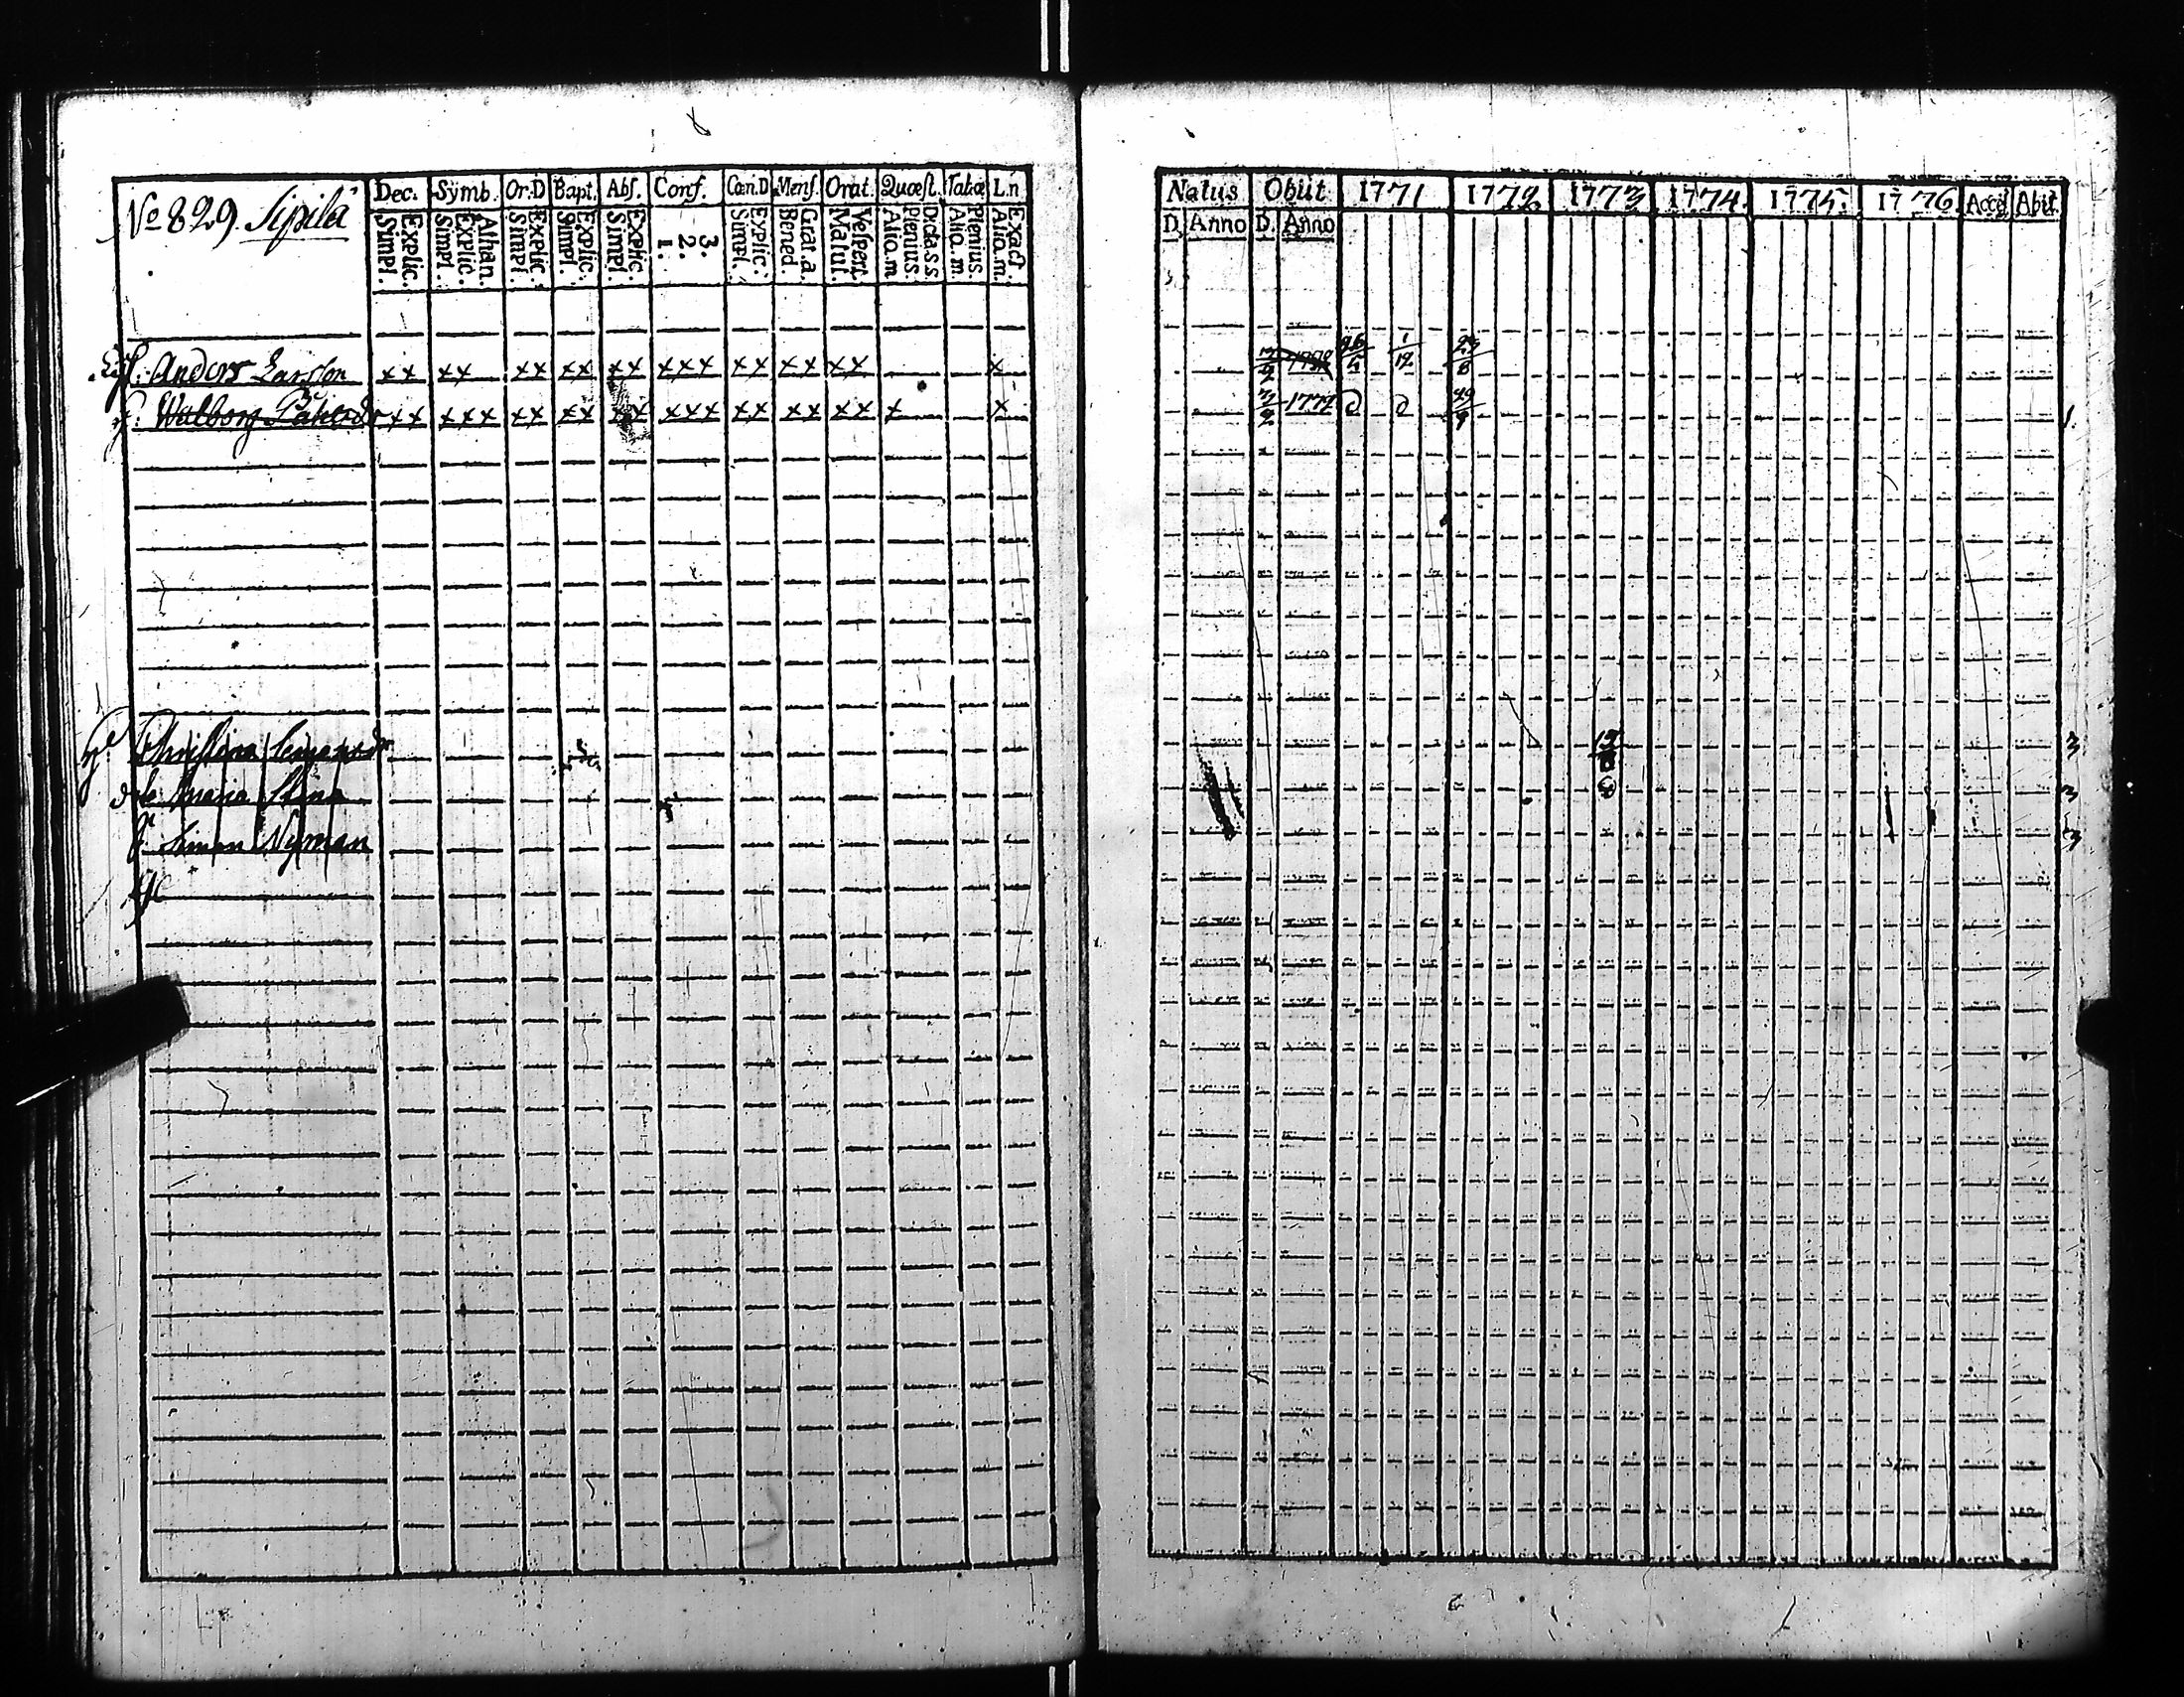 No 829. Sipilä
Dec. Symb. Or.D Bapt. Abs. Conf. Cœn.D Mens. Orat. Quæst. Tabœ L.n
Explic. Simpl. Athan. Explic. Simpl. Explic. Simpl. Explic. Simpl. Explic. Simpl. 3. 2. 1. Explic. Simpl. Grat.a. Bened. Vespert. Matut. Dicta.s.s. Plenius. Aliq.m Plenius. Aliq.m. Exact Aliq.m.
Anders Larsson xx xx xx xx xx xxx xx xx xx x
h: Walborg xx xxx xx xx xx xxx xx xx xx x x
Christina
Maria Stina
Simon Nyman
Natus Obiit 1771 1772 1773 1774. 1775. 1776 Acceſ. Abit.
D. Anno D. Anno
26/5 1/12 29/8
1772 1.
3
3
3